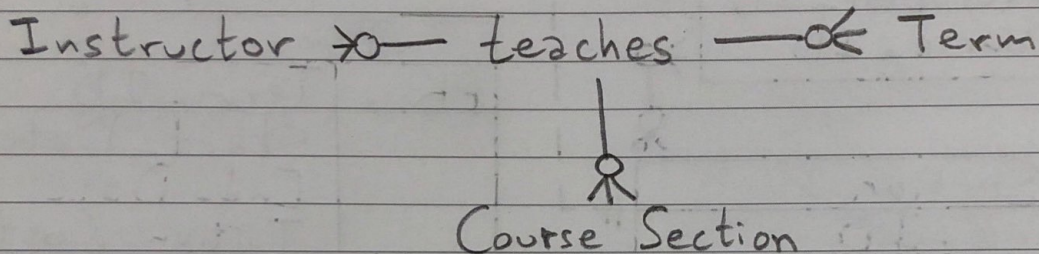 Instructor teaches Term
Course Section